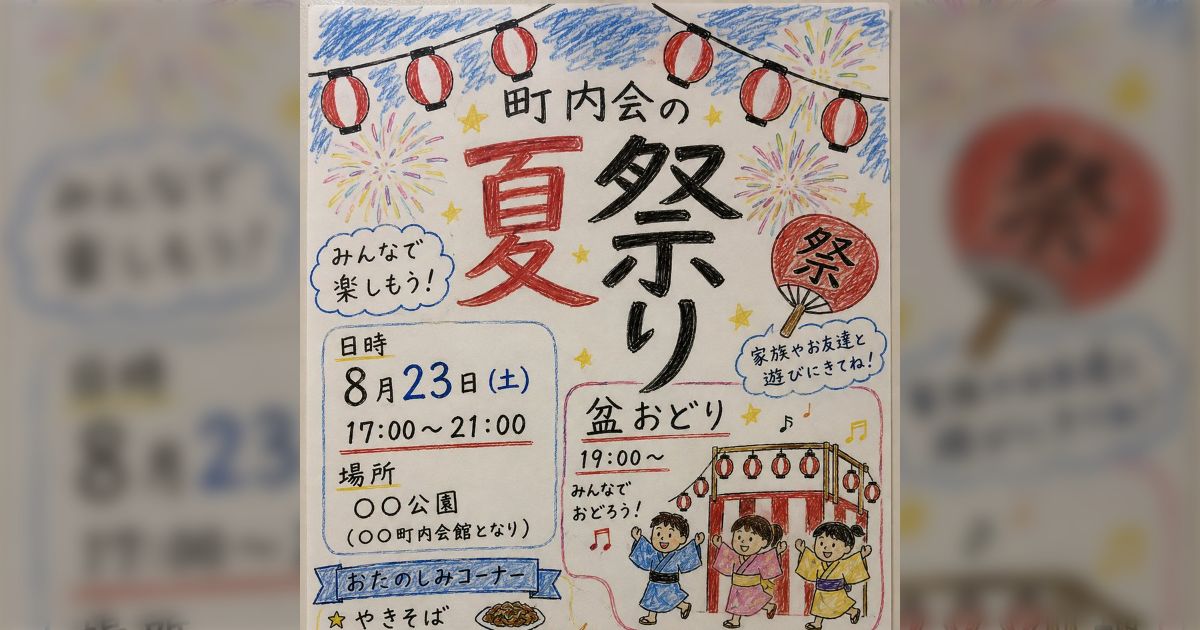 町内会の
夏祭り
祭
みんなで
楽しもう!
家族やお友達と
遊びにきてね!
日時
8月23日(土)
17:00～21:00
場所
〇〇公園
(〇〇町内会館となり)
盆おどり
19:00～
みんなで
おどろう!
おたのしみコーナー
★やきそば